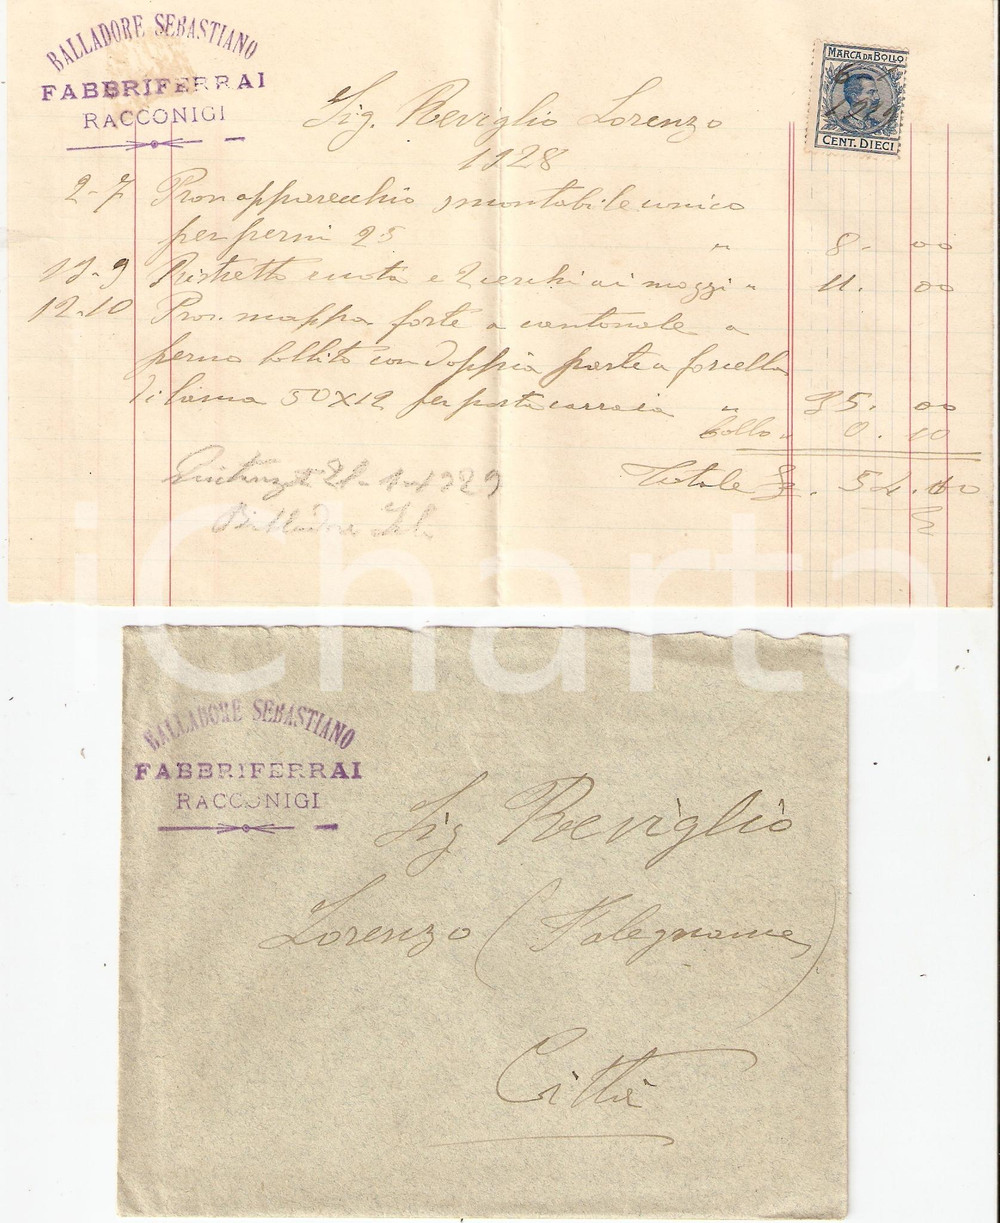 BALLADORE SEBASTIANO
FABBRIFERRAI
RACCONIGI
MARCA DA BOLLO
CENT. DIECI
Sig. Reviglio Lorenzo
1928
2-7 apparecchio smontabile unico
per perni 25 " 8. 00
13-9 Ristretto ruota e 2 cerchi ai mozzi " 11. 00
12-10 mappa forte a cantonale a
perno bollito con doppia parte a forcella
di lama 50x12 per porta carraia " 35. 00
bollo " 0. 10
Totale £. 54. 10
Quitanza 21-1-1929
Balladore Seb.
iCharta
BALLADORE SEBASTIANO
FABBRIFERRAI
RACCONIGI
Sig Reviglio
Lorenzo (Falegname)
Città